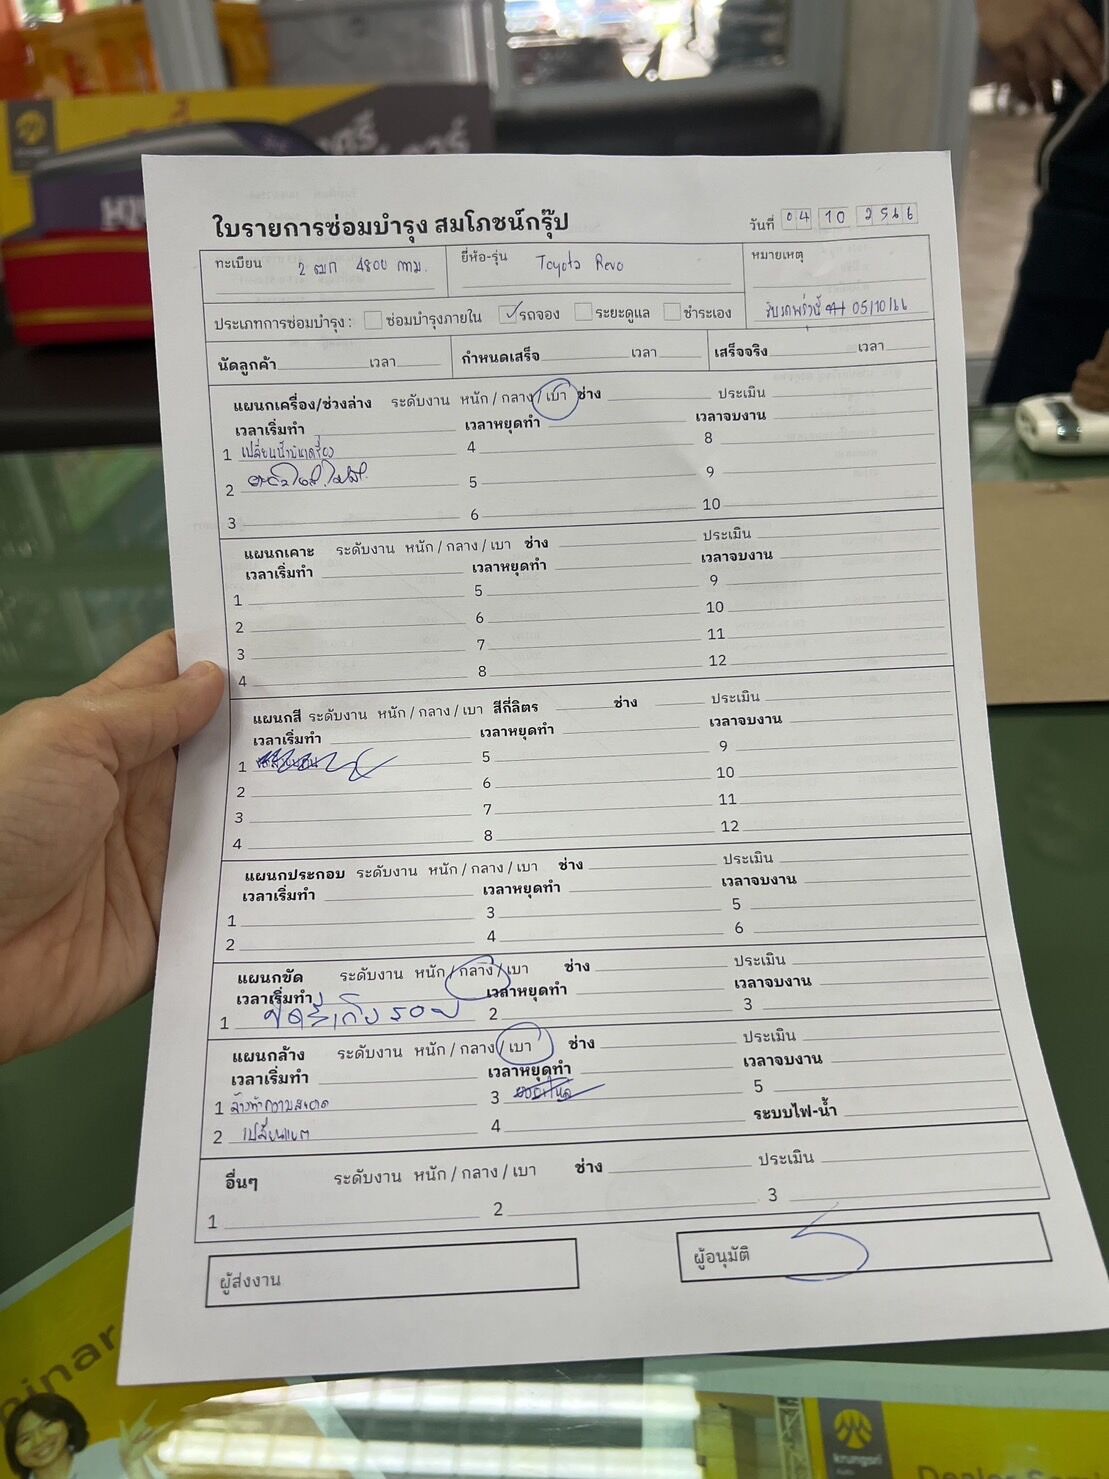 ใบรายการซ่อมบำรุง สมโภชน์กรุ๊ป
วันที่ 04 10 2566
ทะเบียน 2 ฒก 4800 กทม.
ยี่ห้อ-รุ่น Toyota Revo
หมายเหตุ
รับรถพรุ่งนี้ 05/10/66
ประเภทการซ่อมบำรุง : ซ่อมบำรุงภายใน ✓ รถจอง ระยะดูแล ชำระเอง
นัดลูกค้า เวลา กำหนดเสร็จ เวลา เสร็จจริง เวลา
แผนกเครื่อง/ช่วงล่าง ระดับงาน หนัก / กลาง / เบา ช่าง ประเมิน
เวลาเริ่มทำ เวลาหยุดทำ เวลาจบงาน
1 เปลี่ยนน้ำมันเครื่อง 4 8
2 5 9
3 6 10
แผนกเคาะ ระดับงาน หนัก / กลาง / เบา ช่าง ประเมิน
เวลาเริ่มทำ เวลาหยุดทำ เวลาจบงาน
1 5 9
2 6 10
3 7 11
4 8 12
แผนกสี ระดับงาน หนัก / กลาง / เบา สีกี่ลิตร ช่าง ประเมิน
เวลาเริ่มทำ เวลาหยุดทำ เวลาจบงาน
1 5 9
2 6 10
3 7 11
4 8 12
แผนกประกอบ ระดับงาน หนัก / กลาง / เบา ช่าง ประเมิน
เวลาเริ่มทำ เวลาหยุดทำ เวลาจบงาน
1 3 5
2 4 6
แผนกขัด ระดับงาน หนัก / กลาง / เบา ช่าง ประเมิน
เวลาเริ่มทำ เวลาหยุดทำ เวลาจบงาน
1 ขัดสีเก็บรอย 2 3
แผนกล้าง ระดับงาน หนัก / กลาง / เบา ช่าง ประเมิน
เวลาเริ่มทำ เวลาหยุดทำ เวลาจบงาน
1 ล้างทำความสะอาด 3 5
2 เปลี่ยนแบต 4 ระบบไฟ-น้ำ
อื่นๆ ระดับงาน หนัก / กลาง / เบา ช่าง ประเมิน
1 2 3
ผู้ส่งงาน ผู้อนุมัติ
inar
krungsri